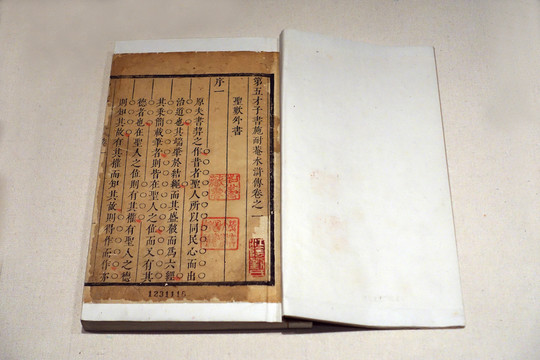 第五才子書施耐菴水滸傳卷之一
聖歎外書
序一
原夫書契之作昔者聖人所以同民心而出
治道也其端肇於結繩而其盛殽而為六經
其秉簡載筆者則皆在聖人之位而又有其
德者也在聖人之位則有其權有聖人之德
則知其故有其權而知其故則得作而作不
1231116